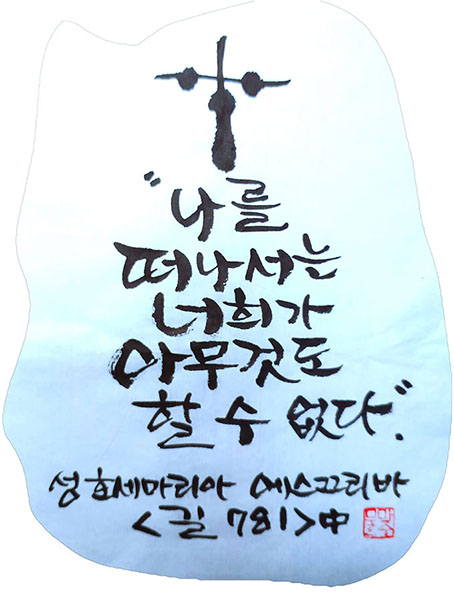 "나를
떠나서는
너희가
아무것도
할 수 없다".
성 호세마리아 에스끄리바
<길 781>中